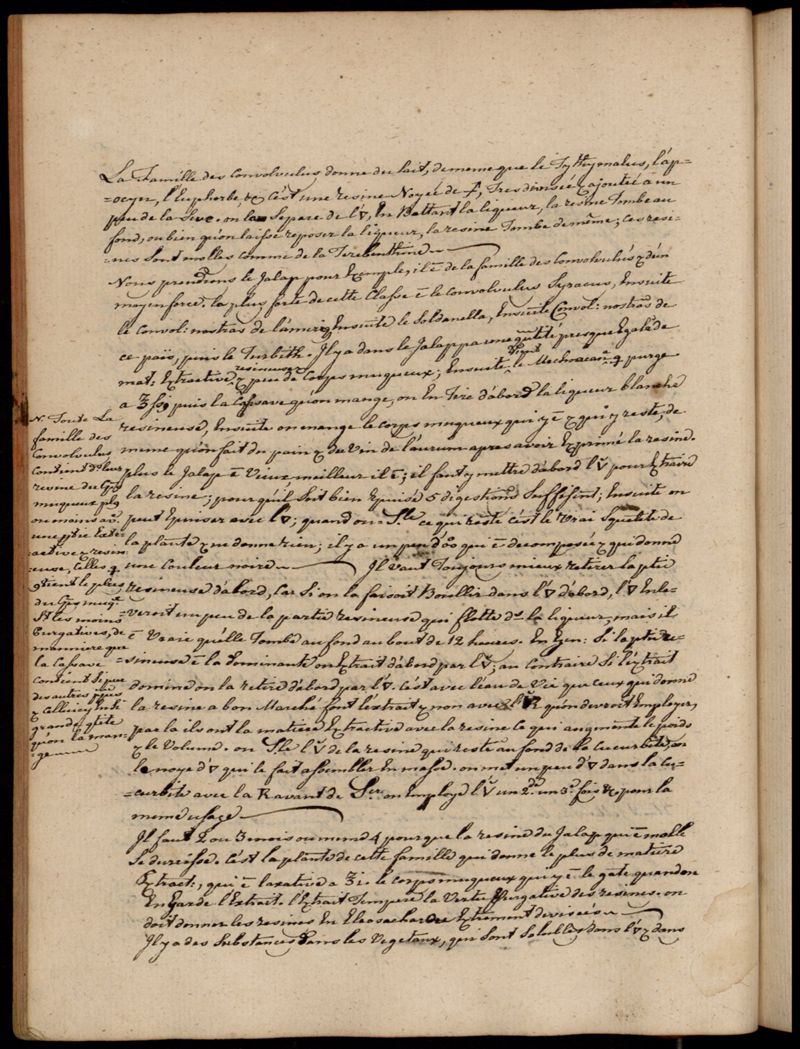 La Famille des convolvulus donne du lait, de meme que le Tythymalus, l'ap=
=ocyn, l'Eupherbe, &c c'est une resine Noyée de ▽, Tres divisée & ajoutée à un
peu de la séve. on la separe de l'▽, En Battant la liqueur, la resine Tombe au
fond, ou bien qu'on laisse reposer la liqueur, la resine Tombe de même; ces resi=
=nes sont molles comme de la Terebenthine
Nous prendrons le Jalap pour Exemple; il ē de la famille des convolvulus & d'un
moyen force. la plus forte de cette Classe ē le convolvulus Syracus, Ensuite
le convol: nostras de l'ameriq Ensuite le Soldanella, Ensuite Convol: nostras de
ce païs, puis le Turbith. Il y a dans le Jalap pa une qūtité presque Egale de
mat. Extractive & resineuse peu de corps muqueux; Ensuite vient le Mechoacan purge
a ʒ puis la Cassave qu'on mange, on En Tire d'abord la liqueur blanche
resineuse, Ensuite on mange le corps muqueux qui y ē & qui y reste, de
meme qu'on fait du pain & du Vin de l'aurum apres avoir Exprimé la resine.
plus le Jalap ē Vieux meilleur il ē; il faut y mettre d'abord l'▽ pour Extraire
la resine; pour qu'il soit bien Epuisé 5 digestions suffisent; Ensuite on
peut Epuiser avec l'▽; quand on Sle ce qui reste c'est le Vrai squelete de
la plante & ne donne rien; il y a un peu d' qui ē decomposée & qui donne
une couleur noire. Il Vaut Toujours mieux retirer la ptie
resineuse d'abord, Car si on la faisoit Bouillir dans l'▽ d'abord, l'▽ Enle=
=veroit un peu de la partie resineuse qui flotte ds la liqueur, mais il
ē Vrai qu'elle Tombe au fond au bout de 12 heures. En Gen: si la ptie re=
=sineuse ē la Dominante on Extrait d'abord par l'▽; au contraire si l'extrait
domine on la retire d'abord par l'▽. c'est avec l'eau de Vie que ceux qui donne
la resine a bon Marché font l'extrait & non avec l'▽ R qu'on devroit Employer,
par la ils ont la matiere Extractive avec la resine ce qui augmente le poids
& le Volume. on Sle l'▽ de la resine qui reste au fond de la cucurbite, on
le noye d'▽ qui le fait assembler En masse. on met un peu d'▽ dans la cu=
=curbite avec la R avant de Ser. on Employe l'▽ un 2d un 3e fois &c, pour la
meme usage
Il faut 2 ou 3 mois ou meme 4 pour que la resine du Jalap qui ē molle
se durcisse. c'est la plante de cette famille qui donne le plus de matiere
Extract:, qui ē laxative a ʒi. le corps muqueux qui y ē le gate quand on
En garde l'Extrait. l'Extrait Tempere la Vertu Purgative des resines. on
doit donner les resines En Eleosacher Extrement divisées
Il y a des substances dans les Vegetaux, qui sont solubles dans l'▽ & dans
N. Toute La
famille des
Convolvulus
Contient ds leur
resine du Cps
muqueux pls
ou moins av.
une ptie Extr=
active & resin=
=euse, Celles q
contient le plus
du Cps muq.
St les moins
Purgatives, de
manniere que
la Cassave
contient si peu
des autres ptis
& celui cy En si
grande qtité
qu'on la man=
=ge